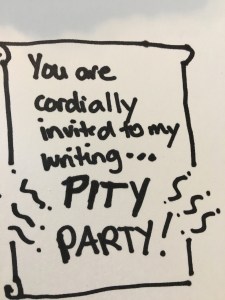 You are
cordially
invited to my
writing...
PITY
PARTY!